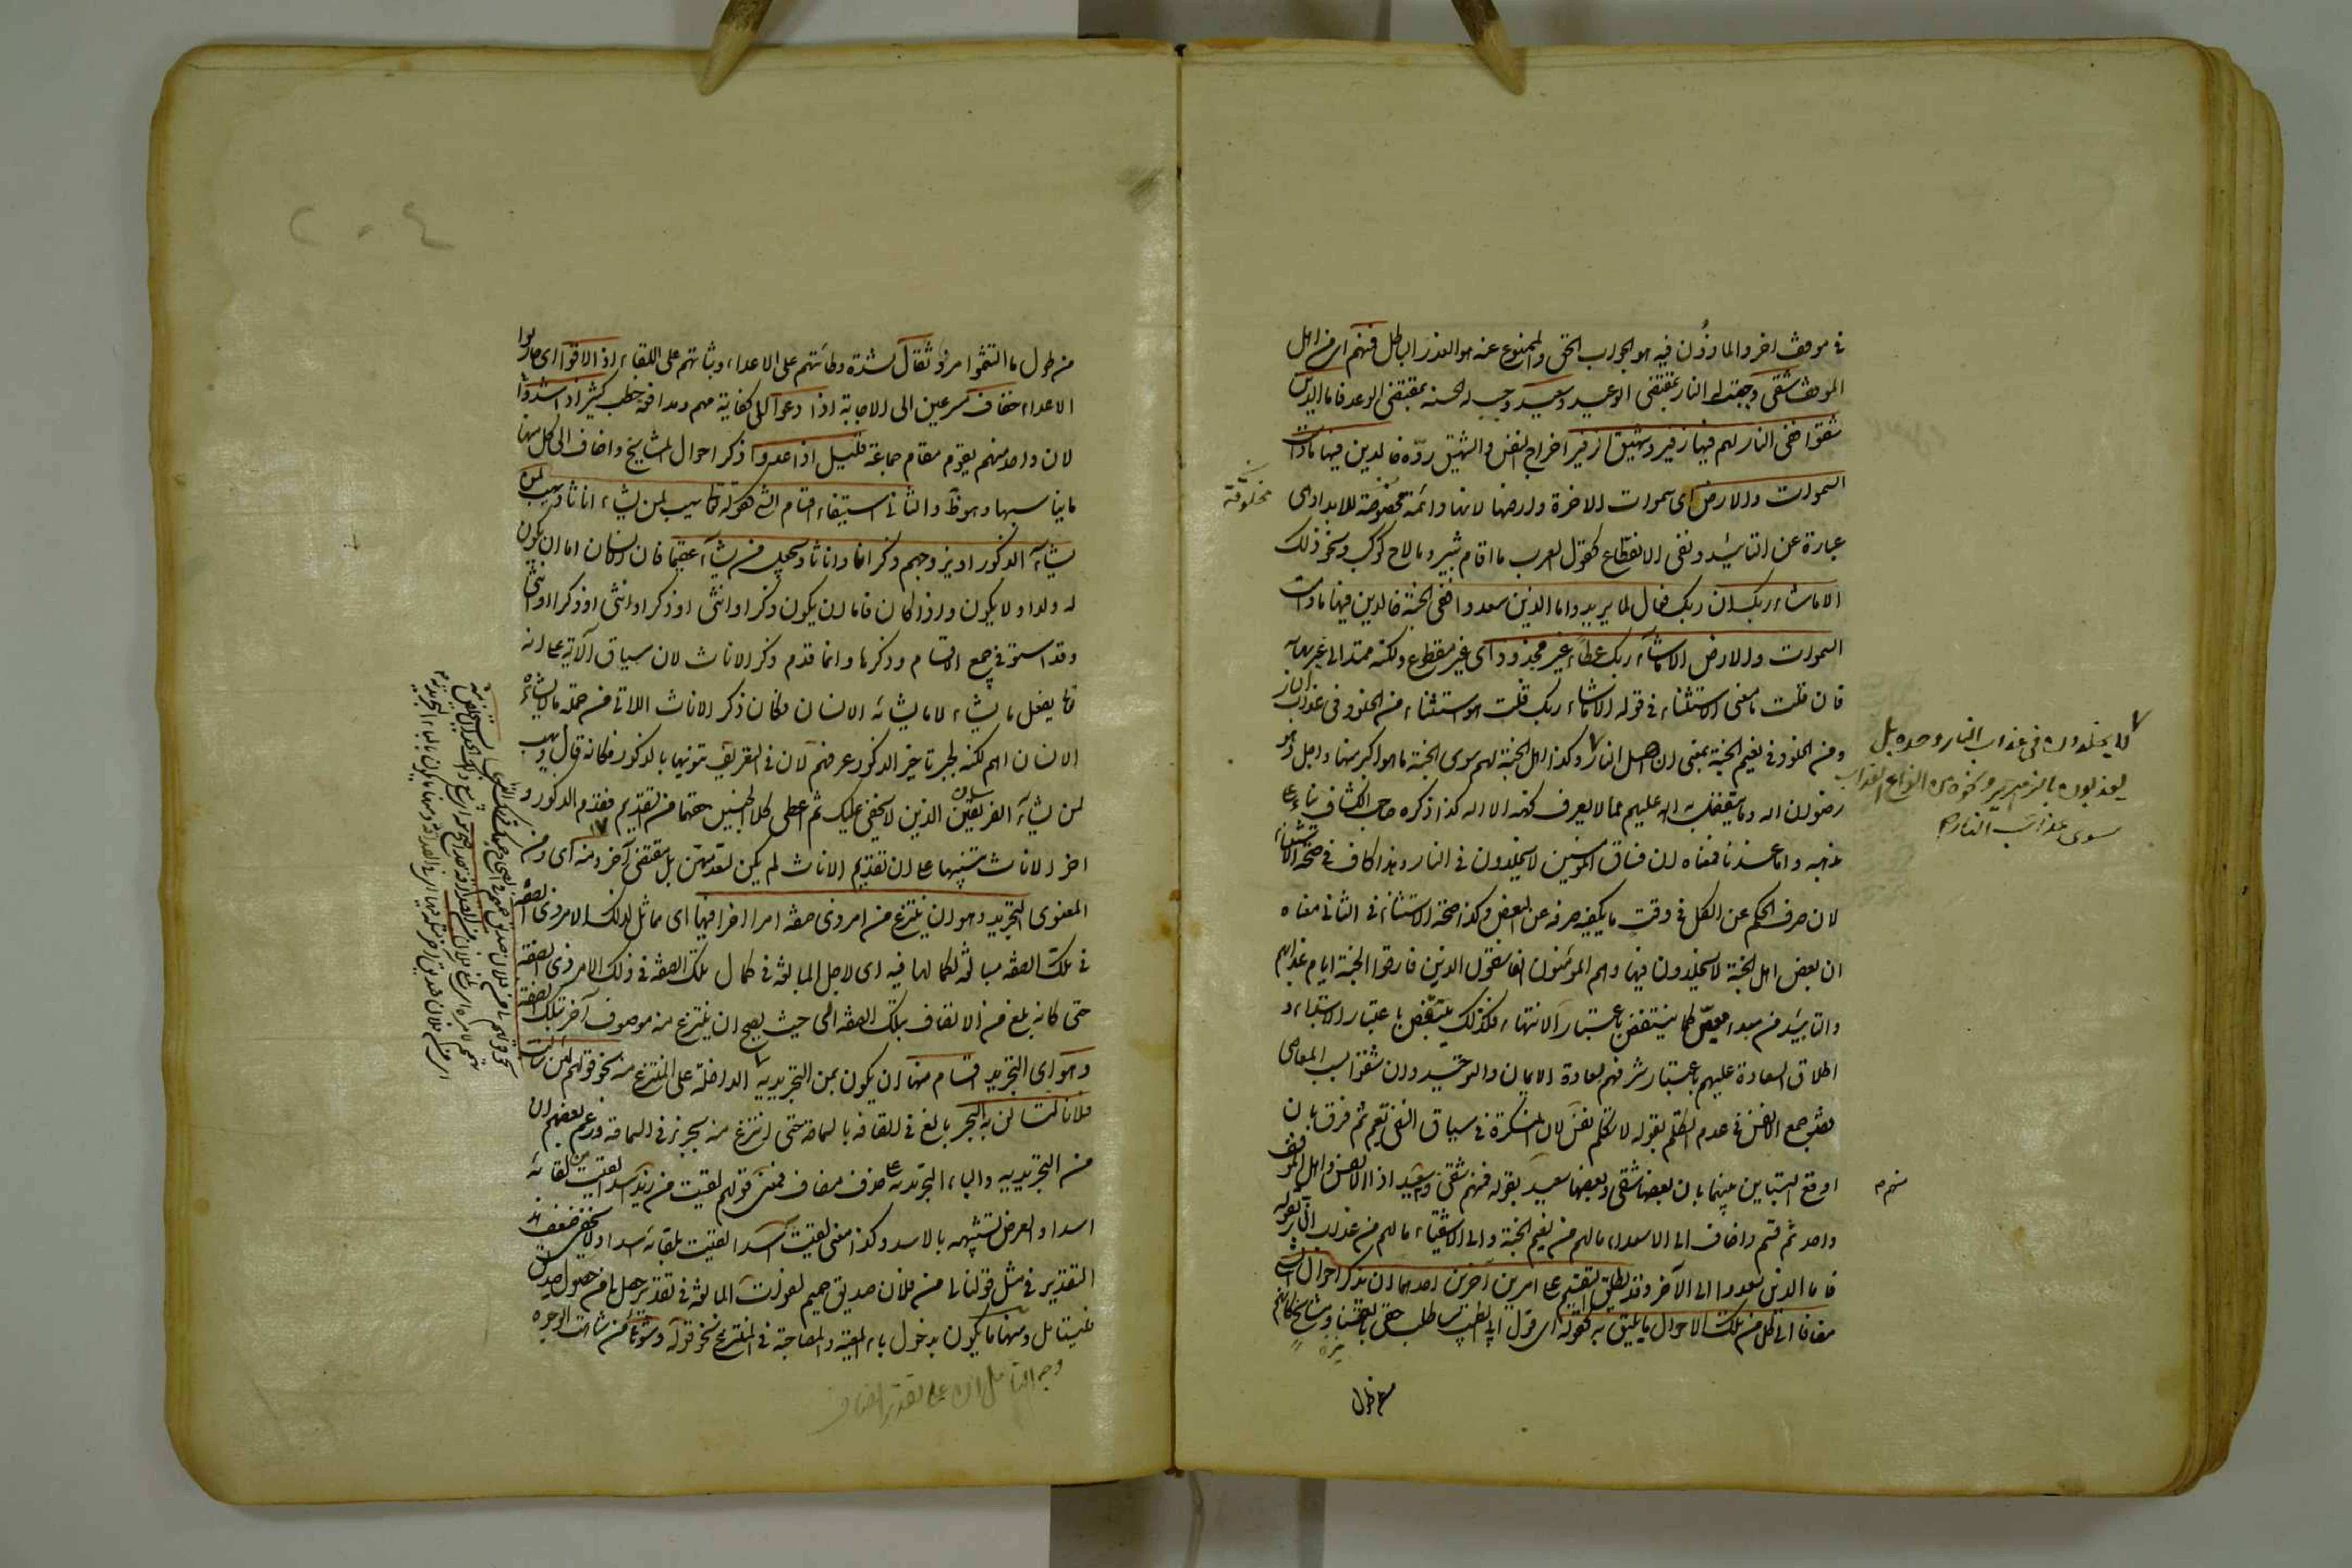 في موقف اخر والماذون فيه هو الجواب الحق والممنوع عنه هو العذر الباطل فمنهم اى من اهل
الموقف شقى وجبت له النار بمقتضى الوعيد وسعيد وجب له الجنة بمقتضى الوعد فاما الذين
شقوا ففى النار لهم فيها زفير وشهيق الزفير اخراج النفس والشهيق ردّه خالدين فيها مادامت
السموات والارض اى سموات الاخرة وارضها لانها دائمة مخلوقة للابد او هى
عبارة عن التاييد ونفى الانقطاع كقول العرب ما اقام ثبير وما لاح كوكب ونحو ذلك
الا ما شاء ربك ان ربك فعال لما يريد واما الذين سعدوا ففى الجنة خالدين فيها مادامت
السموات والارض الا ما شاء ربك عطاء غير مجذوذ اى غير مقطوع ولكنه ممتد الى غير نهاية
فان قلت ما معنى الاستثناء في قوله الا ما شاء ربك قلت هو استثناء من الخلود فى عذاب النار
ومن الخلود فى نعيم الجنة بمعنى ان اهل النار وكذا اهل الجنة لهم سوى الجنة ما هو اكبر منها واجل وهو
رضوان الله وما يتفضل به الله عليهم مما لا يعرف كنهه الا الله كذا ذكره صاحب الكشاف بناء على
مذهبه واما عندنا فمعناه ان فساق المؤمنين لا يخلدون فى النار وهذا كاف في صحة الاستثناء
لان صرف الحكم عن الكل فى وقت ما يكفيه صرفه عن البعض وكذا صحة الاستثناء فى الثانى معناه
ان بعض اهل الجنة لا يخلدون فيها وهم المؤمنون الفاسقون الذين فارقوا الجنة ايام عذابهم
والتاييد من مبدء معيّن كما ينتقض باعتبار الانتهاء فكذلك ينتقض باعتبار الابتداء و
اطلاق السعادة عليهم باعتبار تشرفهم بسعادة الايمان والتوحيد وان شقوا بسبب المعاصى
فقد جمع الانفس فى عدم التكلم بقوله لا تكلم نفس لان النكرة في سياق النفى تعم ثم فرق بان
اوقع التباين بينهما بان بعضها شقى وبعضها سعيد بقوله فمنهم شقى وسعيد اذ الانفس واهل الموقف
واحد ثم قسم واضاف الى السعداء ما لهم من نعيم الجنة والى الاشقياء ما لهم من عذاب النار بقوله
فاما الذين سعدوا الى الآخر وقد يطلق التقسيم على امرين آخرين احدهما ان يذكر احوال الشئ
مضافا الى كل من تلك الاحوال ما يليق به كقوله اى قول ابى الطيب ساطلب حقى بالقنا ومشايخ كانهم
مخلوقة
لا يخلدون فى عذاب النار وحده بل
يعذبون بالزمهرير ونحوه من انواع العذاب
سوى عذاب النار
منهم
من طول
من طول ما التثموا مرد ثقال لشدة وطأتهم على الاعداء وثباتهم على اللقاء اذا لاقوا اى حاربوا
الاعداء خفاف مسرعين الى الاجابة اذا دعوا الى كفاية مهم ومدافعة خطب كثير اذا شدوا
لان واحد منهم يقوم مقام جماعة قليل اذا عدوا ذكر احوال المشايخ واضاف الى كل منها
ما يناسبها وهو ظ والثانى استيفاء اقسام الشئ كقوله تعالى يهب لمن يشاء اناثا ويهب لمن
يشاء الذكور او يزوجهم ذكرانا واناثا ويجعل من يشاء عقيما فان الانسان اما ان يكون
له ولد او لا يكون واذا كان فاما ان يكون ذكرا او انثى او ذكرا وانثى
وقد استوفى جميع الاقسام وذكرها وانما قدم ذكر الاناث لان سياق الآية على انه
تعا يفعل ما يشاء لا ما يشائه الانسان فكان ذكر الاناث اللاتى من جملة ما لا يشاءه
الانسان اهم لكنه لجبر تاخير الذكور عرفهم لان فى التعريف تنويها بالذكور فكانه قال ويهب
لمن يشاء الفريقين الذين لا يخفى عليك ثم اعطى كلا الجنسين حقهما من التقديم فقدم الذكور و
اخر الاناث تنبيها على ان تقديم الاناث لم يكن لتقدمهن بل لمقتضى آخر ومنه اى ومن
المعنوى التجريد وهو ان ينتزع من امر ذى صفة امر اخر فيها اى مماثل لذلك الامر ذى الصفة
فى تلك الصفة مبالغة لكمالها فيه اى لاجل المبالغة فى كمال تلك الصفة فى ذلك الامر ذى الصفة
حتى كانه بلغ من الاتصاف بتلك الصفة الى حيث يصح ان ينتزع منه موصوف آخر بتلك الصفة
وهو اى التجريد اقسام منها ان يكون بمن التجريدية الداخلة على المنتزع منه نحو قولهم لئن سالت
فلانا لتسالن به البحر بالغ فى اتصافه بالسماحة حتى انتزع منه بحر فى السماحة وزعم بعضهم ان
من التجريدية والباء التجريدية على حذف مضاف فمعنى قولهم لقيت من زيد اسدا لقيت من لقائه
اسدا والغرض تشبيهه بالاسد وكذا معنى لقيت به اسدا لقيت بلقائه اسدا ولا يخفى ضعف هذا
التقدير فى مثل قولنا لى من فلان صديق حميم لفوات المبالغة فى تقدير حصل لى من حصوله صديق
فليتامل ومنها ما يكون بدخول باء المعية والمصاحبة فى المنتزع نحو قوله وشوهاء من شاهت الوجوه
وجه التامل ان على تقدير المضاف
٢٠٤